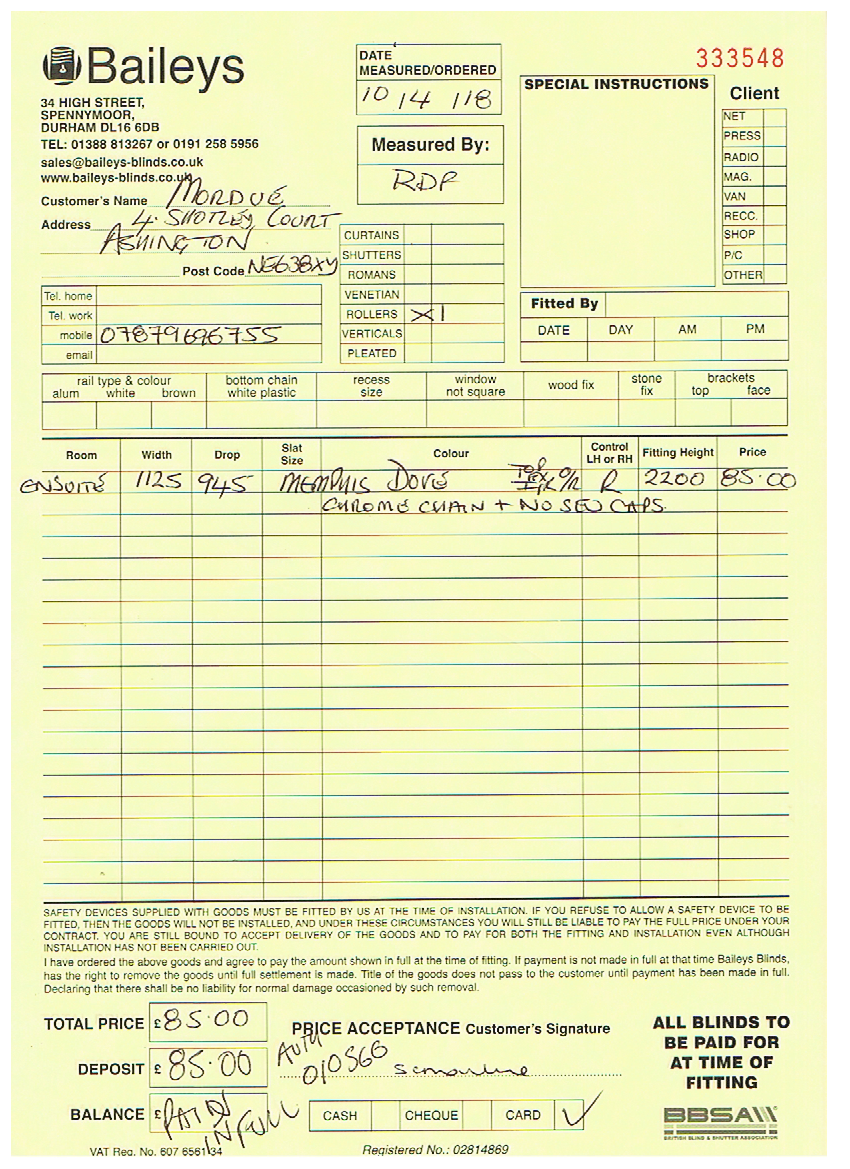 Baileys
34 HIGH STREET,
SPENNYMOOR,
DURHAM DL16 6DB
TEL: 01388 813267 or 0191 258 5956
sales@baileys-blinds.co.uk
www.baileys-blinds.co.uk
DATE
MEASURED/ORDERED
10 14 118
Measured By:
RDP
333548
SPECIAL INSTRUCTIONS
Client
NET
PRESS
RADIO
MAG.
VAN
RECC.
SHOP
P/C
OTHER
Customer's Name MORDUE
Address 4. SHOTLEY COURT
ASHINGTON
Post Code NE638XY
Tel. home
Tel. work
mobile 07879696755
email
CURTAINS
SHUTTERS
ROMANS
VENETIAN
ROLLERS X1
VERTICALS
PLEATED
Fitted By
DATE DAY AM PM
rail type & colour bottom chain recess window wood fix stone brackets
alum white brown white plastic size not square fix top face
Room Width Drop Slat Size Colour Control LH or RH Fitting Height Price
ENSUITE 1125 945 MEMPHIS DOVE TOP FIX O/R R 2200 85.00
CHROME CHAIN + NO SEW CAPS
SAFETY DEVICES SUPPLIED WITH GOODS MUST BE FITTED BY US AT THE TIME OF INSTALLATION. IF YOU REFUSE TO ALLOW A SAFETY DEVICE TO BE
FITTED, THEN THE GOODS WILL NOT BE INSTALLED, AND UNDER THESE CIRCUMSTANCES YOU WILL STILL BE LIABLE TO PAY THE FULL PRICE UNDER YOUR
CONTRACT. YOU ARE STILL BOUND TO ACCEPT DELIVERY OF THE GOODS AND TO PAY FOR BOTH THE FITTING AND INSTALLATION EVEN ALTHOUGH
INSTALLATION HAS NOT BEEN CARRIED OUT.
I have ordered the above goods and agree to pay the amount shown in full at the time of fitting. If payment is not made in full at that time Baileys Blinds,
has the right to remove the goods until full settlement is made. Title of the goods does not pass to the customer until payment has been made in full.
Declaring that there shall be no liability for normal damage occasioned by such removal.
TOTAL PRICE £85.00
DEPOSIT £ 85.00
BALANCE £ PAID IN FULL
PRICE ACCEPTANCE Customer's Signature
AUTH
010566
CASH CHEQUE CARD ✓
ALL BLINDS TO
BE PAID FOR
AT TIME OF
FITTING
BBSA
BRITISH BLIND & SHUTTER ASSOCIATION
VAT Reg. No. 607 6561 34
Registered No.: 02814869